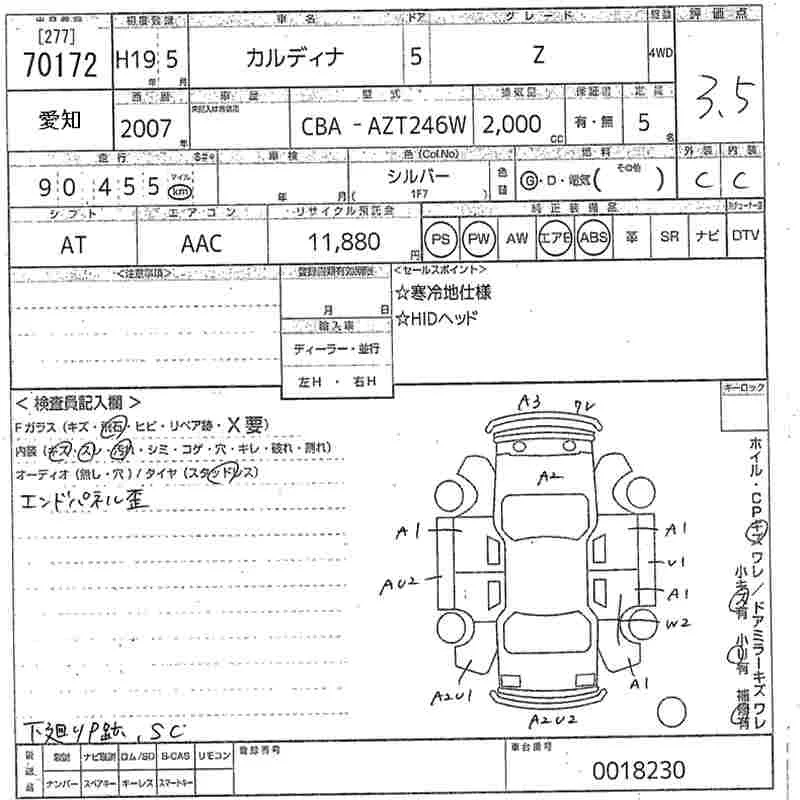 初度登録 車名 ドア グレード 評価点
[277]
70172 H19 5 カルディナ 5 Z 4WD 3.5
年 月
西暦 車歴 型式 排気量 保証書 定員
愛知 2007 CBA - AZT246W 2,000 有・無 5
年 CC 名
走行 車検 色(Col.No) 燃料 外装 内装
90455 マイル km シルバー 色替 G・D・電気( その他 ) C C
年 月( 1F7 )
シフト エアコン リサイクル預託金 純正装備品
AT AAC 11,880 円 PS PW AW エアB ABS 革 SR ナビ DTV
<注意事項> <セールスポイント>
☆寒冷地仕様
月 日 ☆HIDヘッド
輸入車
ディーラー・並行
左H ・ 右H
キーロック
< 検査員記入欄 >
Fガラス(キズ・飛石・ヒビ・リペア跡・X要)
内装(キズ・スレ・汚れ・シミ・コゲ・穴・キレ・破れ・割れ)
オーディオ(無し・穴)/タイヤ(スタッドレス)
エンドパネル歪
A3 ワレ
A2
A1 A1
U1
AU2 A1
W2
A2U1 A1
A2U2
ホイル・CPキズ ワレ/ドアミラーキズ ワレ
小キズ有 小U有 補修有
下廻りP跡、SC
ナビ取説 ロム/SD B-CAS リモコン 登録番号 車台番号
ナンバー スペアキー キーレス スマートキー 0018230